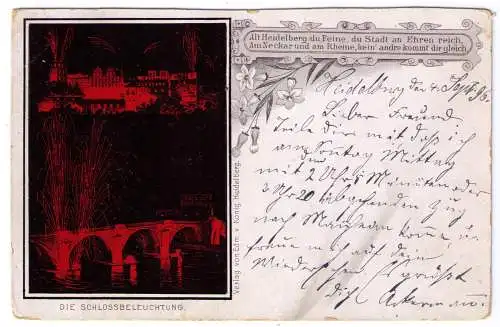 Alt Heidelberg du Feine, du Stadt an Ehren reich,
Am Neckar und am Rheine, kein' andre kommt dir gleich
Heidelberg den 4. Sept. 98.
Lieber Freund
Teile Dir mit daß ich
am Sonntag Mittag
mit 2 Uhr 5 Minuten oder
3 Uhr 20 abgehenden Zug
nach komme u.
freue mich auf dein
Wiedersehen Es grüßt
Dich Ackermann.
Verlag von Edm. v. König, Heidelberg.
DIE SCHLOSSBELEUCHTUNG.